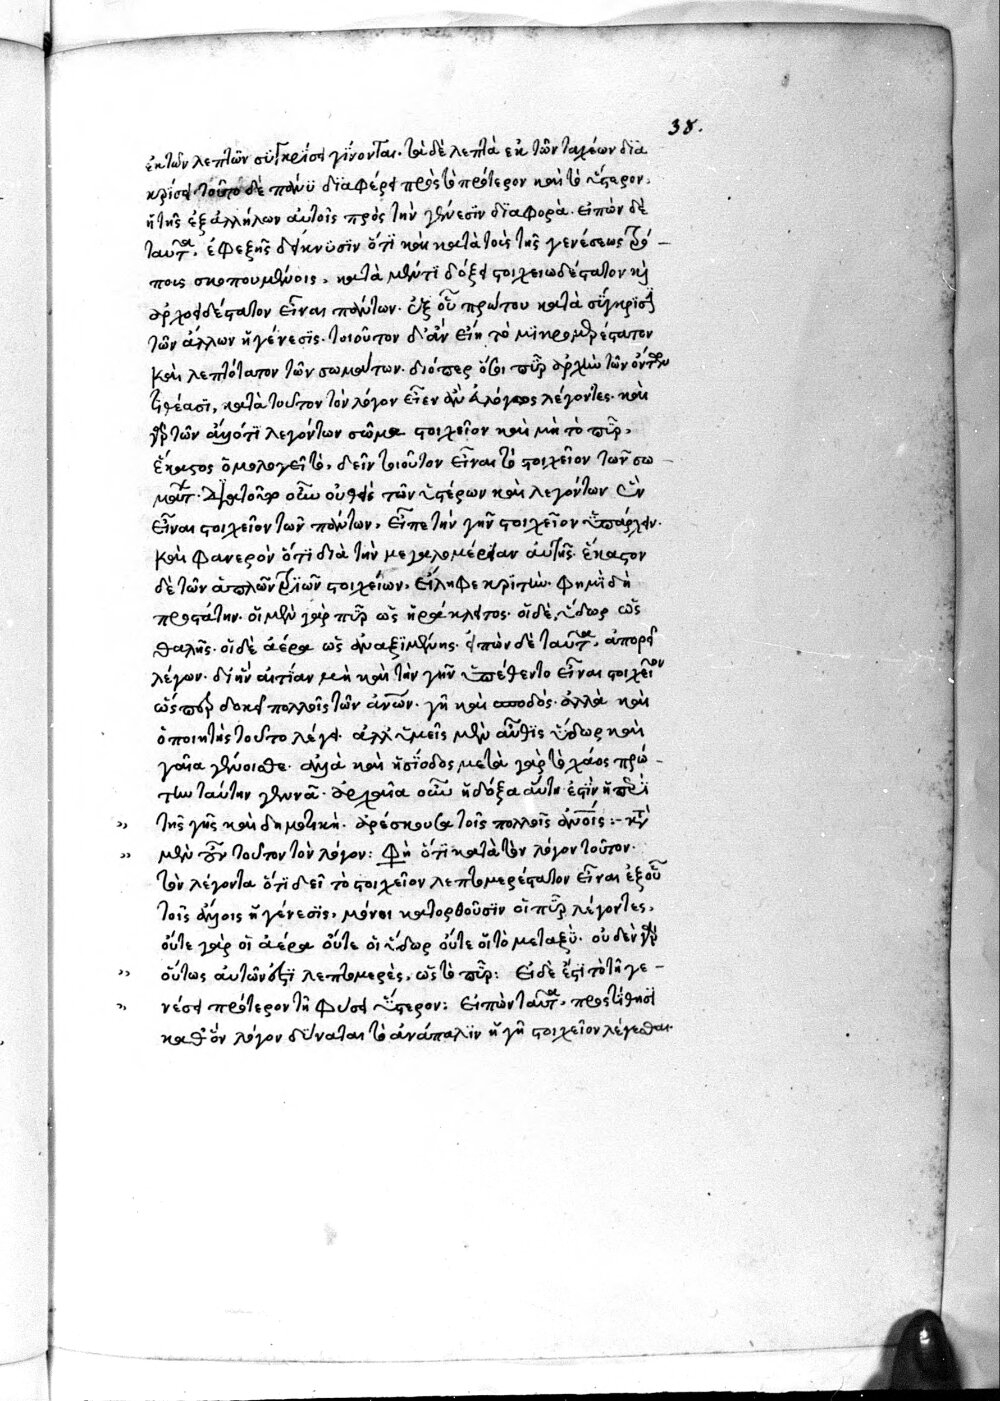 38.
ἐκ τῶν λεπτῶν συγκρίσει γίνονται. τὰ δὲ λεπτὰ ἐκ τῶν παχέων δια
κρίσει. τοῦτο δὲ πολὺ διαφέρει πρὸς τὸ πρότερον καὶ τὸ ὕστερον,
ἢ τῆς ἐξ ἀλλήλων αὐτοῖς πρὸς τὴν γένεσιν διαφορά. εἰπὼν δὲ
ταῦτα, ἐφεξῆς δείκνυσιν ὅτι καὶ κατὰ τοὺς τῆς γενέσεως τρό
ποις σκοπουμένοις, κατὰ μέν τι δόξει στοιχειωδέστατον καὶ
ἀρχοειδέστατον εἶναι πάντων. ἐξ οὗ πρώτου κατὰ σύγκρισιν
τῶν ἄλλων ἡ γένεσις. τοιοῦτον δ' ἂν εἴη τὸ μικρομερέστατον
καὶ λεπτότατον τῶν σωμάτων. διόπερ ὅσοι πῦρ ἀρχὴν τῶν ὄντων
τιθέασι, κατὰ τοῦτον τὸν λόγον εἶεν ἂν λέγοντες. καὶ
γὰρ τῶν ἄλλό τι λεγόντων σῶμα στοιχεῖον καὶ μὴ τὸ πῦρ,
ἕκαστος ὁμολογεῖ τὸ, δεῖν τοιοῦτον εἶναι τὸ στοιχεῖον τῶν σω
μάτων. οὖν οὐθεὶς τῶν ὑστέρων καὶ λεγόντων ἓν
εἶναι στοιχεῖον τῶν πάντων, εἶπε τὴν γῆν στοιχεῖον ὑπάρχειν.
καὶ φανερὸν ὅτι διὰ τὴν μεγαλομέρειαν αὐτῆς. ἕκαστον
δὲ τῶν ἁπλῶν τριῶν στοιχείων, εἴληφε κριτὴν. φημὶ δὴ
προστάτην. οἱ μὲν γὰρ πῦρ ὡς ἡράκλειτος. οἱ δὲ, ὕδωρ ὡς
θαλῆς. οἱ δὲ ἀέρα ὡς ἀναξιμένης. εἰπὼν δὲ ταῦτα, ἀπορεῖ
λέγων. δι' ἣν αἰτίαν μὴ καὶ τὴν γῆν ὑπέθεντο εἶναι στοιχεῖον
ὥσπερ δοκεῖ πολλοῖς τῶν ἀνων. γῆ καὶ σποδός. ἀλλὰ καὶ
ὁ ποιητὴς τοῦτο λέγει. ἀλλ' ὑμεῖς μὲν αὖθις ὕδωρ καὶ
γαῖα γένοισθε. ἀλλὰ καὶ ἡσίοδος μετὰ γὰρ τὸ χάος πρώ
την ταύτην γεννᾷ. ἀρχαία οὖν ἡ δόξα αὕτη ἐστὶν ἡ περὶ
τῆς γῆς καὶ δημοτικὴ. ἀρέσκουσα τοῖς πολλοῖς ἀνοις :- κατὰ
μὲν οὖν τοῦτον τὸν λόγον: Φὴ ὅτι κατὰ τὸν λόγον τοῦτον.
τὸν λέγοντα ὅτι δεῖ τὸ στοιχεῖον λεπτομερέστατον εἶναι ἐξ οὗ
τοῖς ἄλλοις ἡ γένεσις, μόνοι κατορθοῦσιν οἱ πῦρ λέγοντες,
οὔτε γὰρ οἱ ἀέρα οὔτε οἱ ὕδωρ οὔτε οἱ τὸ μεταξὺ. οὐδὲν γὰρ
οὕτως αὐτῶν ἐστι λεπτομερὲς, ὡς τὸ πῦρ: Εἰ δέ ἐστι τὸ τῇ γε
νέσει πρότερον τῇ φύσει ὕστερον: Εἰπὼν ταῦτα, προστίθησι
καθ' ὃν λόγον δύναται τὸ ἀνάπαλιν ἡ γῆ στοιχεῖον λέγεσθαι.